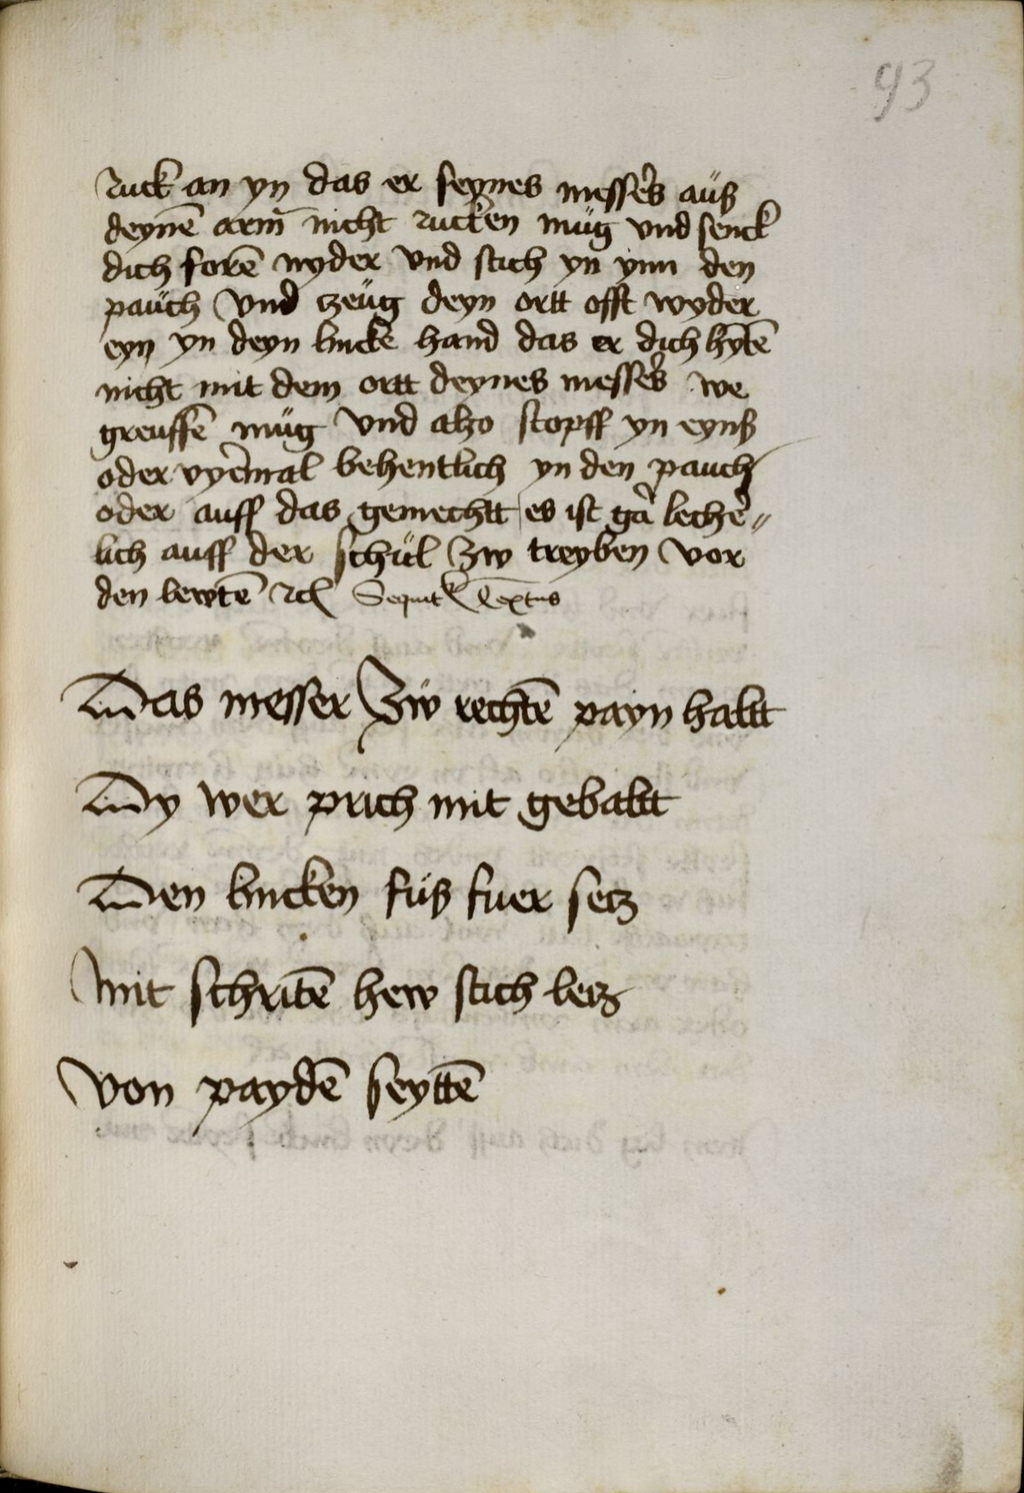 93
ruck an yn das er seynes messers aüß
deynē arm̄ nicht rucken müg vnd senck
dich forē nyder vnd stich yn ynn den
paüch vnd czeüg deyn ortt offt wyder
eyn yn deyn lincke hand das er dich hȳtē
nicht mit dem ortt deynes messers we
greuffē müg vnd also stopff yn eynß
oder vyermal behentlich yn den pauch
oder auff das gemechtt es ist gar lecher„
lich auff der schül zw treyben vor
den lewtē rcł Sequitur Textus
Das messer zẅ rechtē payn haltt
Dy wer prich mit gebaltt
Den lincken füß fuer secz
Mit schritē hew stich lecz
Von paydē seyttē